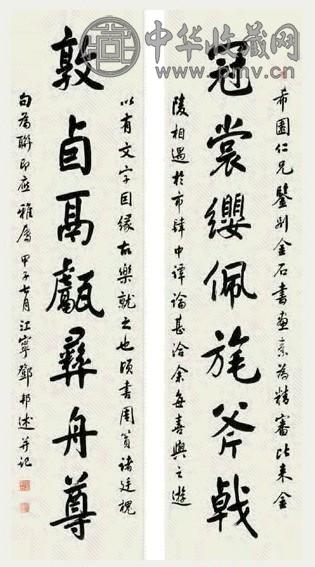 中华收藏网
www.pmv.cn
希園仁兄鑒別金石書畫素為精審比來金
冠裳纓佩旄斧戟
陵相遇於市肆中譚論甚洽余每喜與之遊
以有文字因緣故樂就之也頃書周諸廷槐
敦卣鬲甗彝舟尊
句為聯即應雅屬甲子七月江寧鄧邦述并記